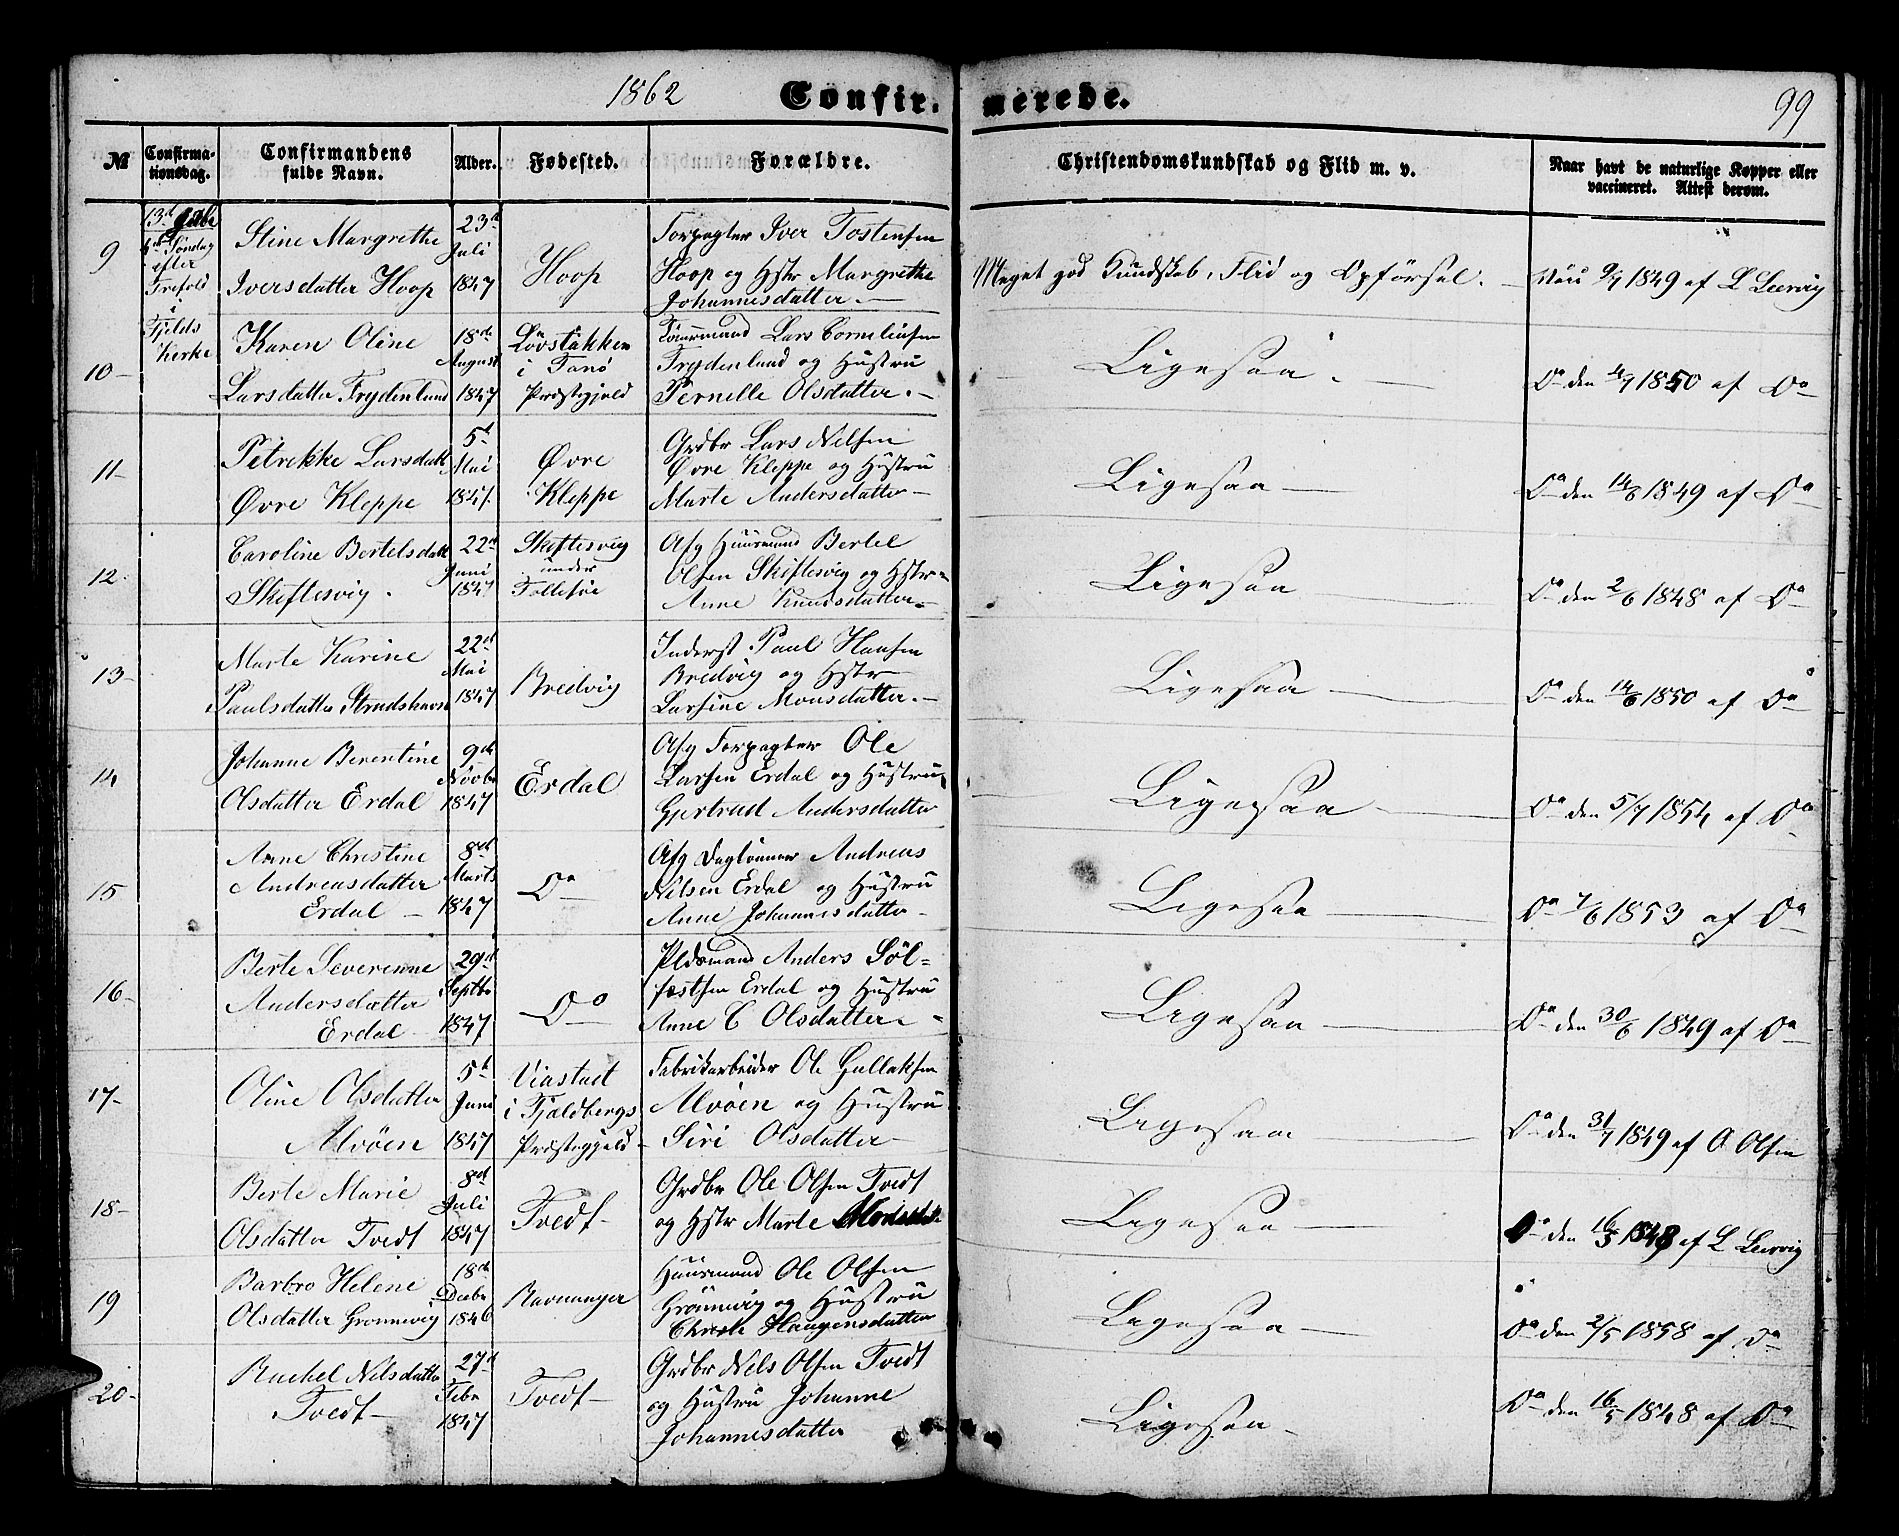 1862 Confirmerede. 99
№ Confirmationsdag. Confirmandens fulde Navn. Alder. Fødested. Forældre. Christendomskundskab og Flid m. v. Naar havt de naturlige Kopper eller vaccineret. Attest derom.
9
13d
Søndag
efter
Trefold
i
Fjelds
Kirke
Stine Margrethe
Iversdatter Hoop
23d
Juli
1847
Hoop
Forpagter Iver Tostensen
Hoop og Hstr Margrethe
Johannesdatter.
Meget god Kundskab, Flid og Opførsel.
1849 af L Leervig
10
Karen Oline
Larsdatter Frydenlund
18de
August
1847
Løvstakken
i Fanø
Præstegjeld
Lars Corneliusen
Frydenlund og Hustru
Pernille Olsdatter.
Ligesaa.
Do den 4/7 1850 af Do
11
Petrikke Larsdatt
Øvre Kleppe
5d
Mai
1847.
Øvre
Kleppe
Grdbr Lars Nilsen
Øvre Kleppe og Hustru
Marte Andersdatter
Ligesaa
Do den 14/6 1849 af Do
12.
Caroline Bertelsdatt
Skiftesvig.
22d
Juni
1847
Skiftesvig
under
Follesøe
Afg Huusmand Bertel
Olsen Skiftesvig og Hstr
Anne Knudsdatter
Ligesaa
Do den 2/6 1848 af Do
13
Marte Karine
Paulsdatter Strudshavn
22d
Mai
1847
Bredvig
Inderst Paul Hansen
Bredvig og Hstr
Larsine Monsdatter.
Ligesaa
Do den 14/6 1850 af Do
14
Johanne Berentine
Olsdatter Erdal
9de
Novbr
1847
Erdal
Afg Forpagter Ole
Larsen Erdal og Hustru
Gjertrud Andersdatter
Ligesaa
Do den 5/7 1854 af Do
15
Anne Christine
Andreasdatter
Erdal
8de
Marts
1847
Do
Afg Daglønner Andreas
Nilsen Erdal og Hustru
Anne Johannesdatter
Ligesaa
Do 7/6 1853 af Do
16
Berte Severenne
Andersdatter
Erdal
29d
Septbr
1847
Do
Pldsmand Anders Søl=
fæstsen Erdal og Hustru
Anne C Olsdatter
Ligesaa
Do den 30/6 1849 af Do
17
Oline Olsdatter
Alvøen
5d
Juni
1847
Viastad
i Fjældbergs
Præstegjeld
Fabrikarbeider Ole Gullaksen
Alvøen og Hustru
Siri Olsdatter
Ligesaa
Do den 31/7 1849 af O Olsen
18
Berte Marie
Olsdatter Tvedt
8de
Juli
1847
Tvedt
Grdbr Ole Olsen Tvedt
og Hstr Marte
Ligesaa
Do den 16/5 1848 af L Leervig
19
Barbro Helene
Olsdatter Grønnevig
18de
Decbr
1846
Ravnanger
Huusmand Ole Olsen
Grønnevig og Hustru
Christe Haagensdatter
Ligesaa
Do den 2/5 1858 af Do
20
Rachel Nilsdatter
Tvedt
27d
Febr
1847
Tvedt
Grdbr Nels Olsen Tvedt
og Hustru Johanne
Johannesdatter
Ligesaa
Do den 16/5 1848 af Do